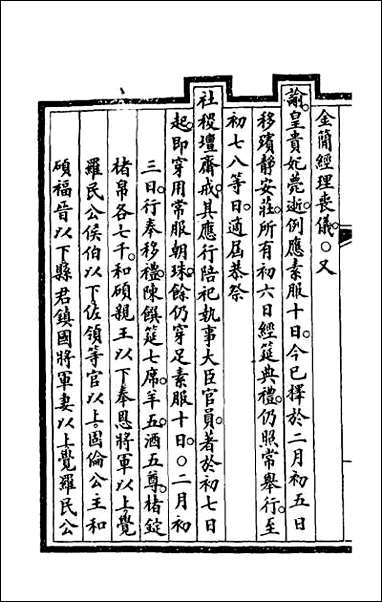 金簡經理喪儀〇又
諭皇貴妃薨逝例應素服十日今已擇於二月初五日
移殯靜安莊所有初六日經筵典禮仍照常舉行至
初七八等日適屆春祭
社稷壇齋戒其應行陪祀執事大臣官員著於初七日
起即穿用常服朝珠餘仍穿足素服十日〇二月初
三日行奉移禮陳饌筵七席羊五酒五尊楮錠
楮帛各七千和碩親王以下奉恩將軍以上覺
羅民公侯伯以下佐領等官以上固倫公主和
碩福晉以下縣君鎮國將軍妻以上覺羅民公